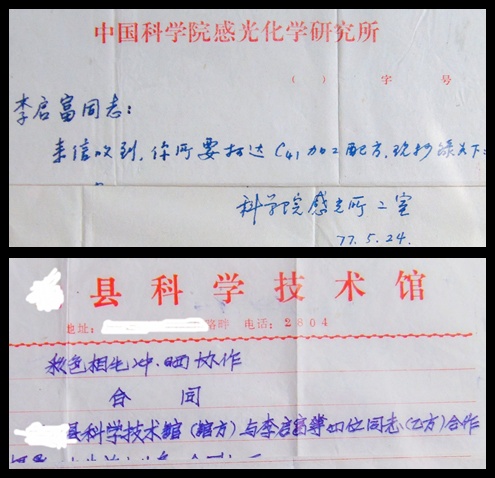 中国科学院感光化学研究所
（ ） 字 号
李启富同志：
来信收到，你所要柯达C41加工配方，现抄录如下：
科学院感光所二室
77.5.24.
县科学技术馆
地址： 路畔 电话：2804
彩色相纸冲、晒协作
合同
县科学技术馆（馆方）与李启富等四位同志（乙方）合作